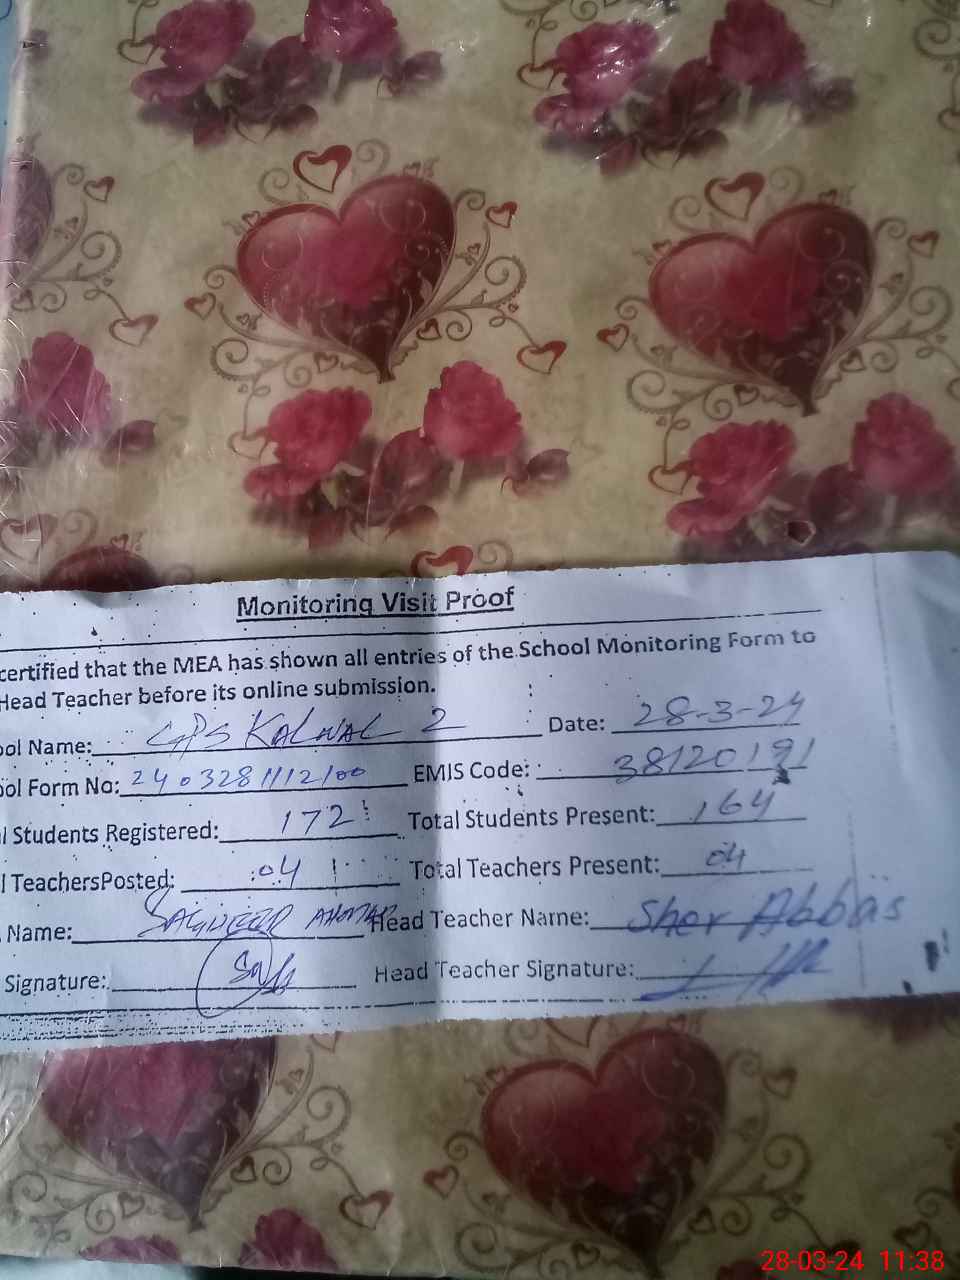 Monitoring Visit Proof
certified that the MEA has shown all entries of the School Monitoring Form to
Head Teacher before its online submission.
ool Name: GPS KALWAL 2 Date: 28-3-24
ool Form No: 2403281112100 EMIS Code: 38120191
l Students Registered: 172 Total Students Present: 164
l TeachersPosted: 04 Total Teachers Present: 04
Name: SAGHEER AHMAD Head Teacher Name: Sher Abbas
Signature: Head Teacher Signature:
28-03-24 11:38